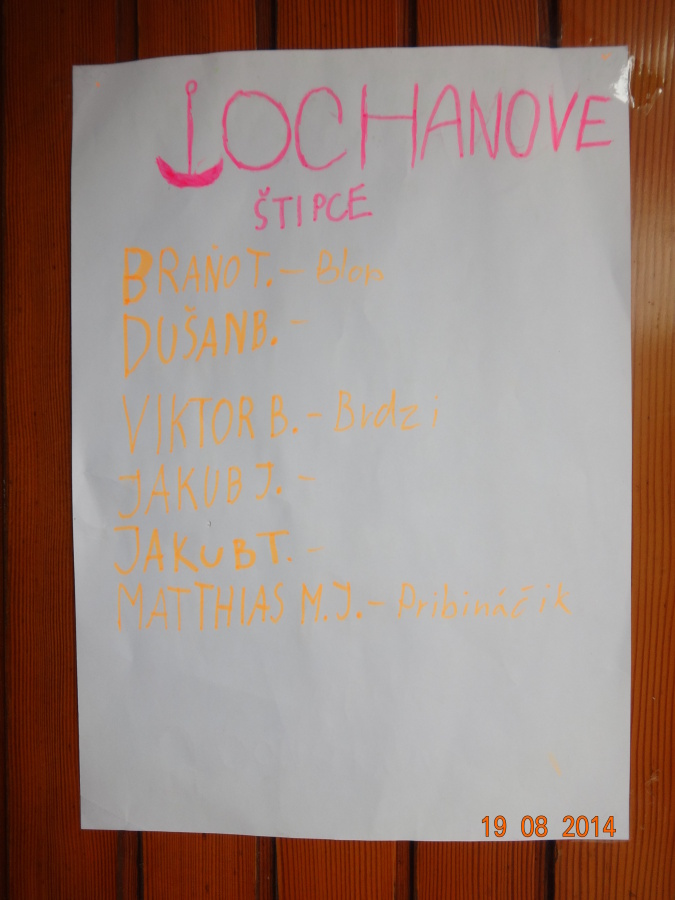 JOCHANOVE
ŠTIPCE
BRAŇO T. - Blon
DUŠAN B. -
VIKTOR B. - Brdzi
JAKUB J. -
JAKUB T. -
MATTHIAS M. J. - Pribináčik
19 08 2014